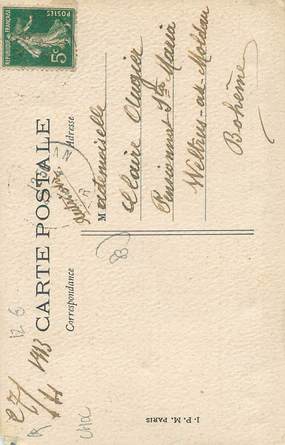 REPUBLIQUE FRANÇAISE
POSTES
5c
CARTE POSTALE
Correspondance
Adresse
Mademoiselle
Claire Augier
Pensionnat Sta Maria
Weltrus-as-Moldau
Bohême
12 B
1913
I. P. M. PARIS